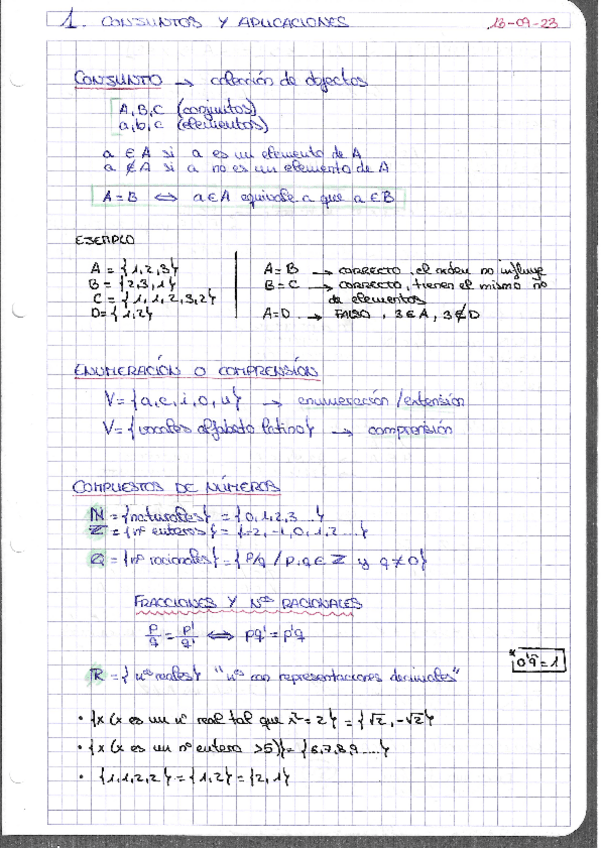 1. CONJUNTOS Y APLICACIONES 13-09-23
CONJUNTO → colección de objectos
A, B, C (conjuntos)
a, b, c (elementos)
a ∈ A si a es un elemento de A
a ∉ A si a no es un elemento de A
A = B ⇔ a ∈ A equivale a que a ∈ B
EJEMPLO
A = {1,2,3} A=B → CORRECTO, el orden no influye
B = {2,3,1} B=C → CORRECTO, tienen el mismo nº
C = {1,1,2,3,2} de elementos
D={1,2} A=D → FALSO, 3 ∈ A, 3 ∉ D
ENUMERACIÓN O COMPRENSIÓN
V = {a, e, i, o, u} → enumeración / extensión
V = {vocales alfabeto latino} → comprensión
COMPUESTOS DE NÚMEROS
ℕ = {naturales} = {0,1,2,3 ...}
ℤ = {nº enteros} = {-2,-1,0,1,2 ....}
Q = {nº racionales} = {p/q / p,q ∈ ℤ y q ≠ 0}
FRACCIONES Y Nºs RACIONALES
p/q = p'/q' ⇔ pq' = p'q
*0'9̂ = 1
R = {nos reales} "nos con representaciones decimales"
• {x (x es un nº real tal que x² = 2} = {√2, -√2}
• {x (x es un nº entero >5)} = {6,7,8,9 ....}
• {1,1,2,2} = {1,2} = {2,1}